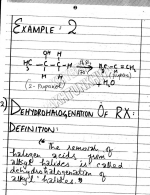 EXAMPLE: 2
OH H
H₃C — C — C — H → H₃C — C = CH₂
H H
(Propene)
H₂O
(2-Propanol)
2) DEHYDROHALOGENATION OF RX:
DEFINITION:
" The removal of
halogen acids from
alkyl halides is called
dehydrohalogenation of
alkyl halides. "